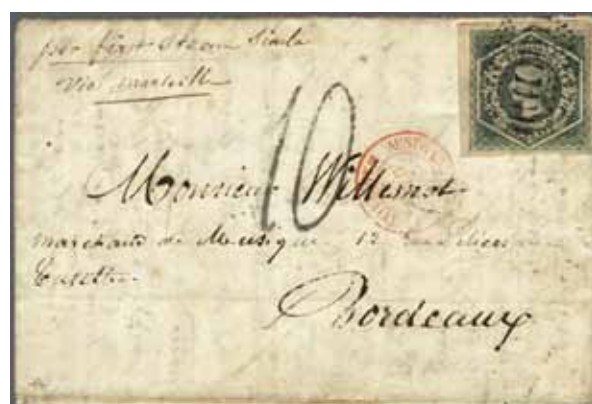 per first steam Simla
Via marseille
10
Monsieur Willemot
marchand de Musique 12
Bordeaux